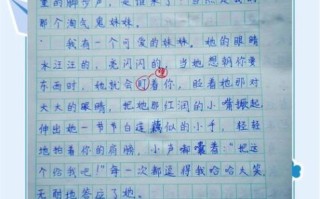 重的脚步声,是谁来了?当然是我的
那个淘气鬼妹妹。
我有一个可爱的妹妹。她的眼睛
水汪汪的,亮闪闪的。当她想朝你要
东西时,她就会盯着你,眨着她那对
大大的眼睛,把她那红润的小嘴撅起
伸出她一节节白莲藕似的小手,轻轻
地拍着你的肩膀,小声嘟囔着:“把这
个给我吧!”每一次都逗得我哈哈大笑,
无耐地答应了她。